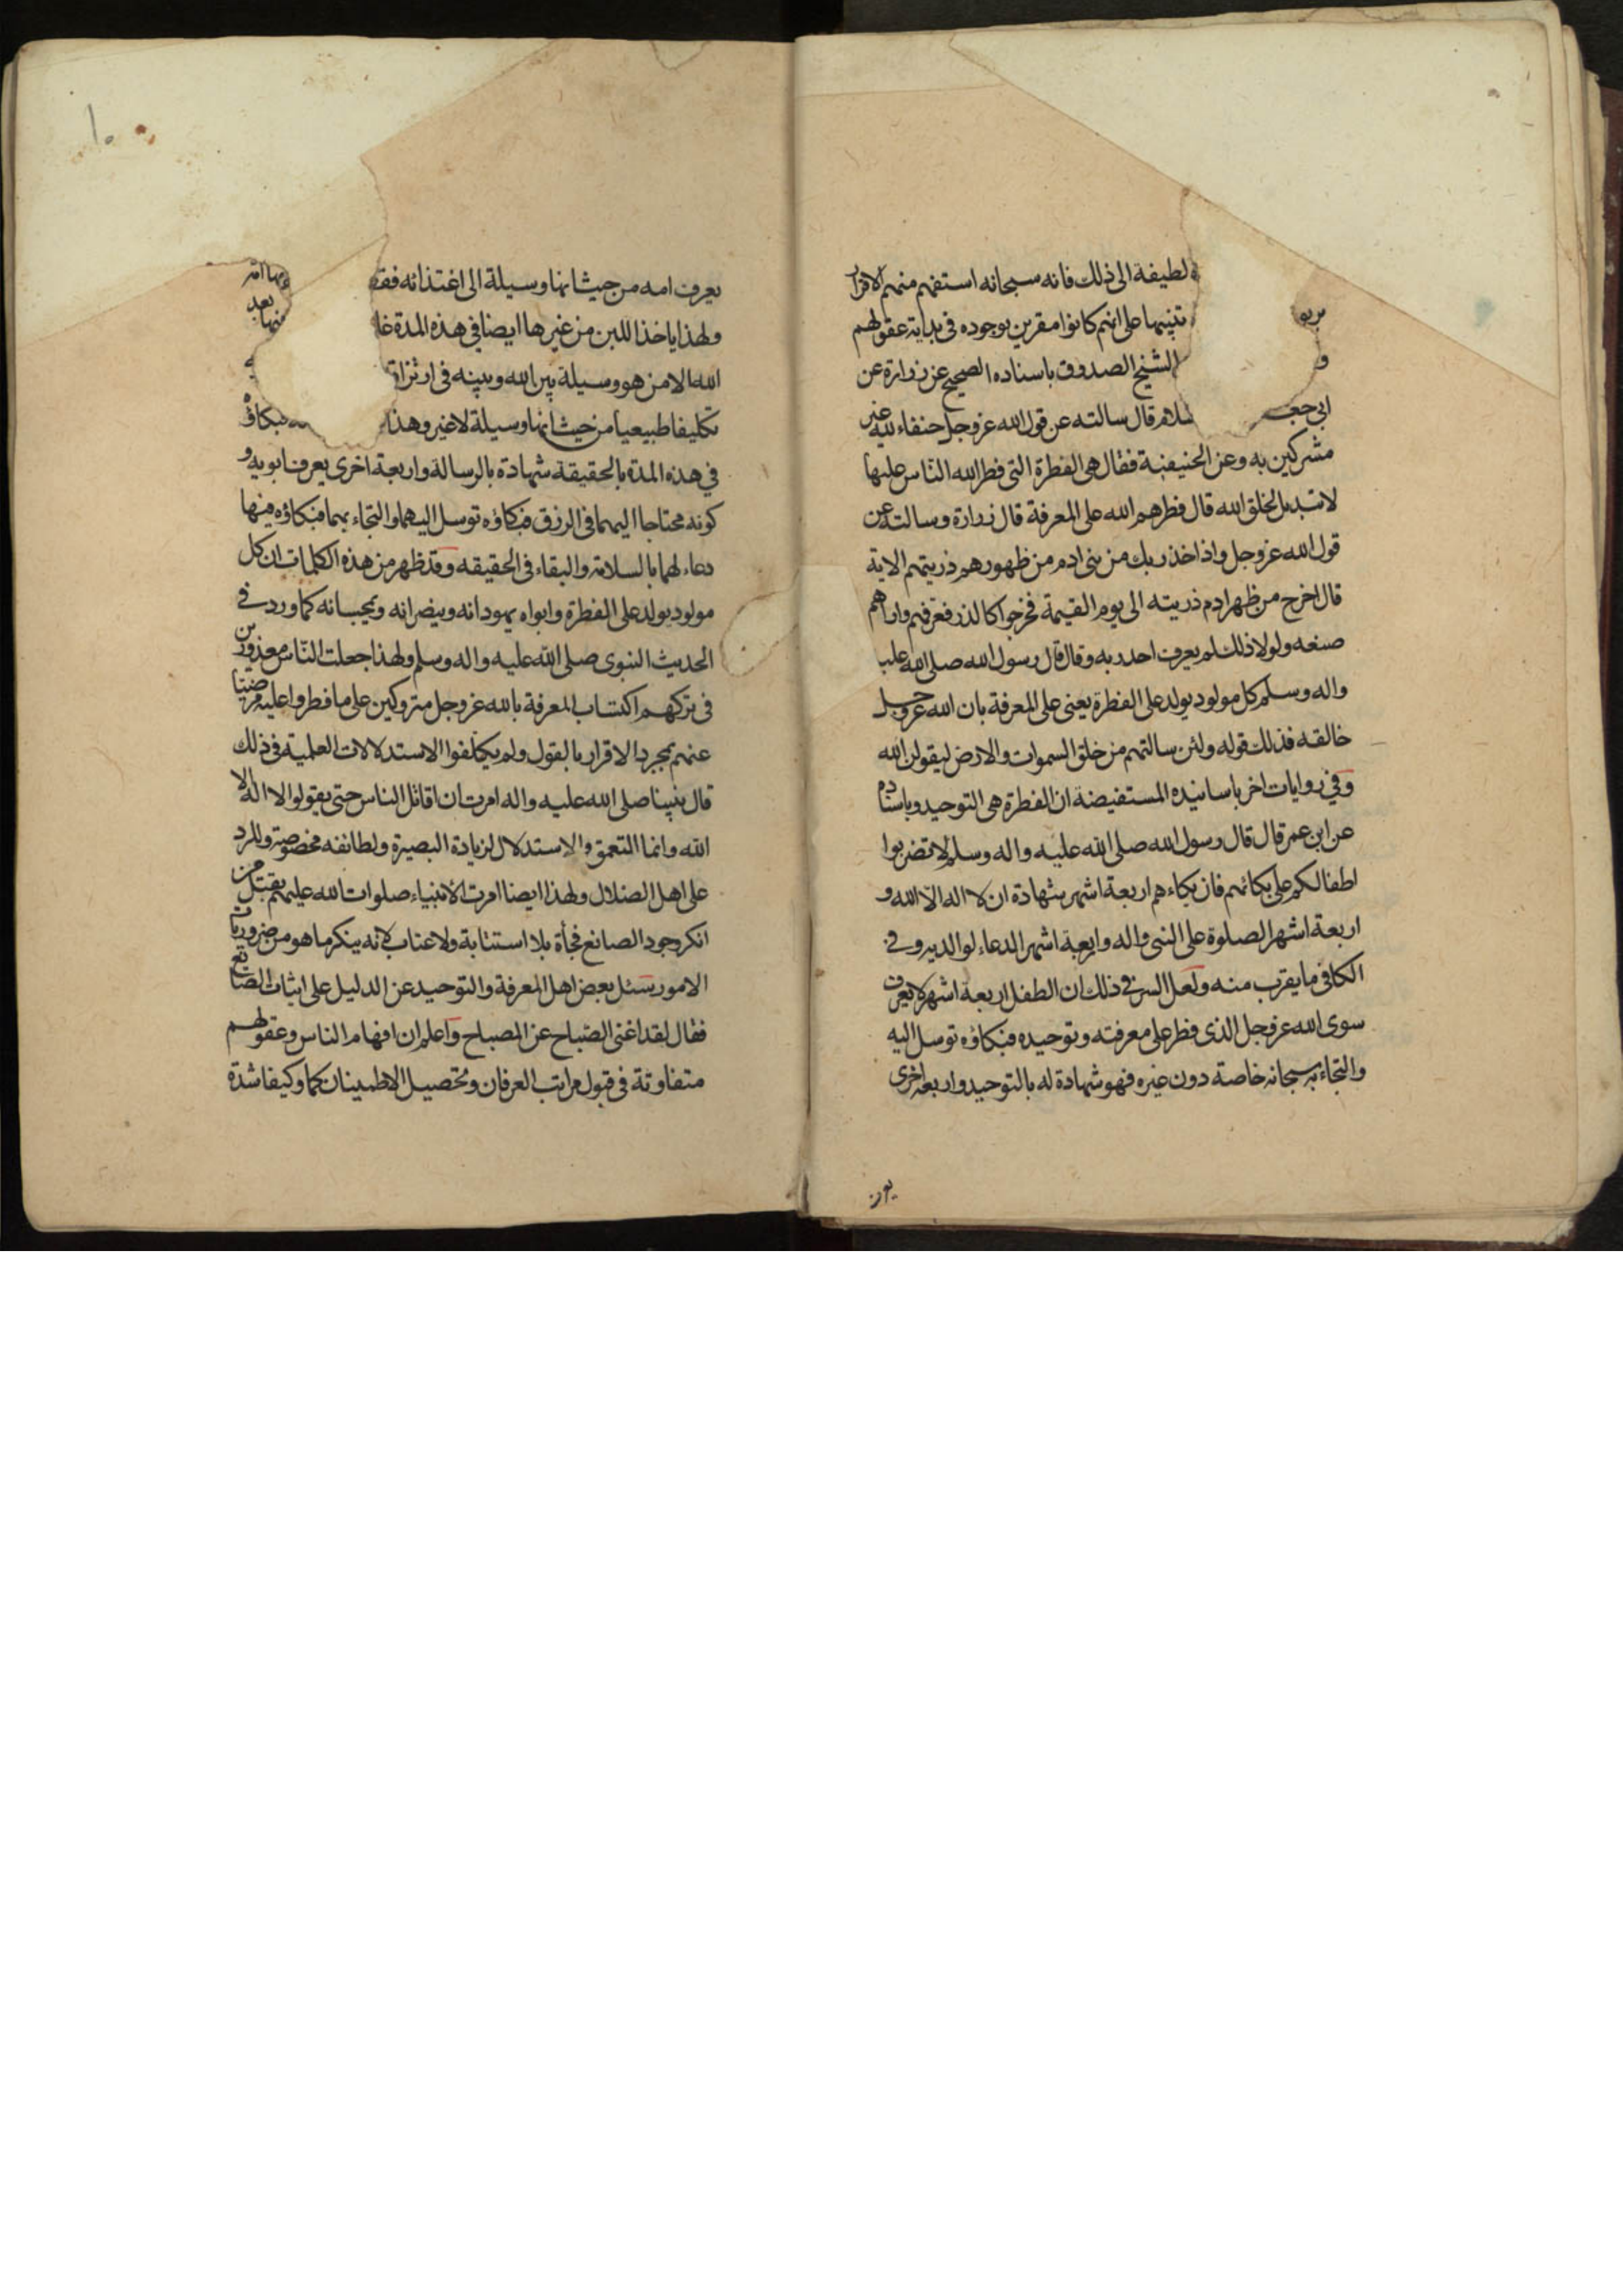 لطيفة الى ذلك فانه سبحانه استفهم منهم الاقرار
تنبيها على انهم كانوا مقرين بوجوده في بداية عقولهم
و الشيخ الصدوق باسناده الصحيح عن زرارة عن
ابي جعـ ـسلام قال سالته عن قول الله عزوجل حنفاء لله غير
مشركين به وعن الحنيفية فقال هي الفطرة التي فطر الله الناس عليها
لا تبديل لخلق الله قال فطرهم الله على المعرفة قال زرارة وسالته عن
قول الله عزوجل واذ اخذ ربك من بني ادم من ظهورهم ذريتهم الاية
قال اخرج من ظهر ادم ذريته الى يوم القيمة فخرجوا كالذر فعرفهم واراهم
صنعه ولولا ذلك لم يعرف احد ربه وقال قال رسول الله صلى الله عليه
واله وسلم كل مولود يولد على الفطرة يعني على المعرفة بان الله عزوجل
خالقه فذلك قوله ولئن سالتهم من خلق السموات والارض ليقولن الله
وفي روايات اخر باسانيده المستفيضة ان الفطرة هي التوحيد وباسناده
عن ابن عمر قال قال رسول الله صلى الله عليه واله وسلم لا تضربوا
اطفالكم على بكائهم فان بكاءهم اربعة اشهر شهادة ان لا اله الا الله و
اربعة اشهر الصلوة على النبي واله واربعة اشهر الدعاء لوالديه وفي
الكافي ما يقرب منه ولعل السر في ذلك ان الطفل اربعة اشهر لا يعرف
سوى الله عزوجل الذي فطر على معرفته وتوحيده فبكاؤه توسل اليه
والتجاء به سبحانه خاصة دون غيره فهو شهادة له بالتوحيد واربعة اخرى
يعرف
يعرف امه من حيث انها وسيلة الى اغتذائه فقـ
ولهذا ياخذ اللبن من غيرها ايضا في هذه المدة غا بعد
الله الا من هو وسيلة بين الله وبينه في ارتزاقـ
تكليفا طبيعيا من حيث انها وسيلة لا غير وهذا فبكاؤه
في هذه المدة بالحقيقة شهادة بالرسالة واربعة اخرى يعرف ابويه و
كونه محتاجا اليهما في الرزق فبكاؤه توسل اليهما والتجاء بهما فبكاؤه فيها
دعاء لهما بالسلامة والبقاء في الحقيقه وقد ظهر من هذه الكلمات ان كل
مولود يولد على الفطرة وابواه يهودانه وينصرانه ويمجسانه كما ورد في
الحديث النبوى صلى الله عليه واله وسلم ولهذا جعلت الناس معذورين
في تركهم اكتساب المعرفة بالله عزوجل متروكين على ما فطروا عليه مرضيا
عنهم بمجرد الاقرار بالقول ولم يكلفوا الاستدلالات العلمية في ذلك
قال نبينا صلى الله عليه واله امرت ان اقاتل الناس حتى يقولوا لا اله الا
الله وانما التعمق والاستدلال لزيادة البصيرة ولطائفة مخصوصة وللرد
على اهل الضلال ولهذا ايضا امرت الانبياء صلوات الله عليهم بقتل من
انكر وجود الصانع فجأة بلا استتابة ولا عتاب لانه ينكر ما هو من ضروريات
الامور سئل بعض اهل المعرفة والتوحيد عن الدليل على اثبات الصانع
فقال لقد اغنى الصباح عن المصباح واعلم ان افهام الناس وعقولهم
متفاوتة في قبول مراتب العرفان وتحصيل الاطمينان كما وكيفا شدة